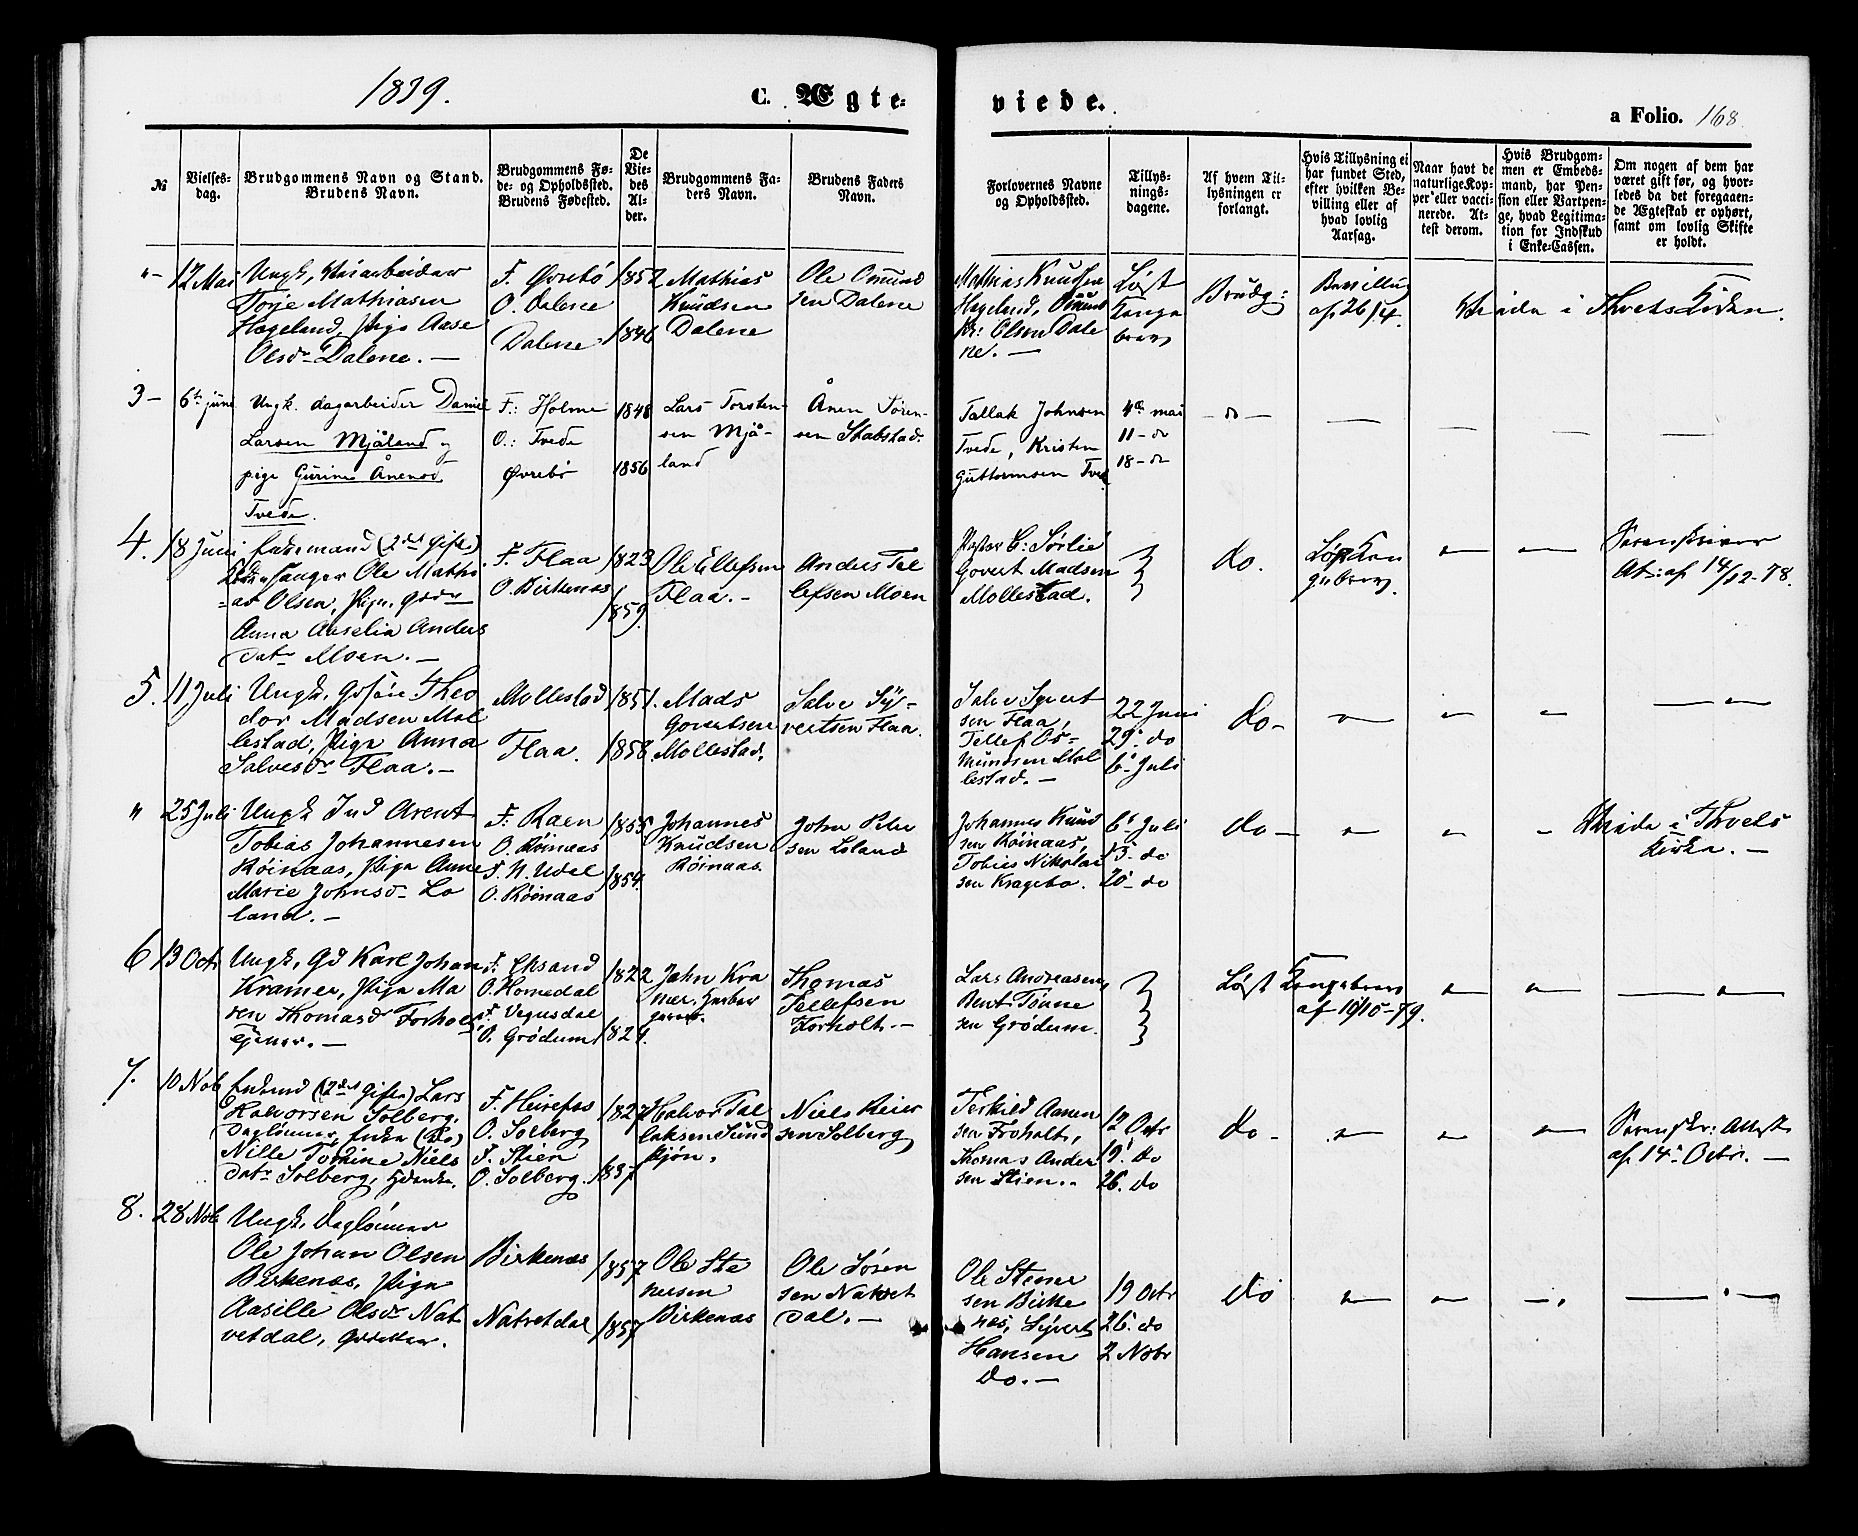 1839.
C. Ægte-
viede.
a Folio. 168
№
Vielses-
dag.
Brudgommens Navn og Stand.
Brudens Navn.
Brudgommens Fø-
de- og Opholdssted.
Brudens Fødested.
De
Vie-
des
Al-
der.
Brudgommens Fa-
ders Navn.
Brudens Faders
Navn.
Forlovernes Navne
og Opholdssted.
Tillys-
nings-
dagene.
Af hvem Til-
lysningen er
forlangt.
Hvis Tillysning ei
har fundet Sted,
efter hvilken Be-
villing eller af
hvad lovlig
Aarsag.
Naar havt de
naturlige Kop-
per eller vacci-
nerede. At-
test derom.
Hvis Brudgom-
men er Embeds-
mand, har Pen-
sion eller Vartpen-
ge, hvad Legitima-
tion for Indskud
i Enke-Cassen.
Om nogen af dem har
været gift før, og hvor-
ledes da det foregaaen-
de Ægteskab er ophørt,
samt om lovlig Skifte
er holdt.
"-
12 Mai
Ungk,
Torje Mathiasen
Hægeland, Pige Aase
Olsdr Dalene. -
F. Øvrebø
O. Dalene
Dalene
1852
1846
Mathias
Knudsen
Dalene
Ole Omund
sen Dalene
Mathias Knudsen
Hægeland, Omund
Olsen Dale
ne. -
Løst
Konge
brev
Brudg:
af 26/4.
3 -
6te juni
Ungk. dagarbeider Daniel
Larsen Mjåland og
pige Gurine Ånensd.
Tvede.
F.: Holme
O.: Tvede
Øvrebø
1848
1856
Lars Torsten-
sen Mjå-
land
Ånen Søren-
sen Stabstad.
Tallak Johnsen
Tvede, Kristen
Guttormsen Tved
4de mai
11 - do
18 - do
- do -
4.
18 Juni
Enkemand (2det Gifte)
Kirkesanger Ole Mathi-
as Olsen, Pige, Grdr
Anna Aaselia Anders
datr Moen. -
F. Flaa
O. Birkenæs
1823
1859
Ole Ellefsen
Flaa. -
Anders Tel
lefsen Moen
Pastor C: Sørlie
Govert Madsen
Mollestad.
do.
Løst Kon
gebrev.
Sorenskriver
At: af 14/12-78.
5.
11 Juli
Ungk. Theo
dor Madsen Mol
lestad, Pige Anna
Salvesdr Flaa. -
Mollestad
Flaa.
1851.
1858
Mads
Govertsen
Mollestad.
Salve Sy-
vertsen Flaa.
Salve Syvert
sen Flaa,
Tellef Os-
mundsen Mol
lestad. -
22 Juni
29. do
6. Juli
do -
"
25 Juli
Ungk Ind Arent
Tobias Johannesen
Røinaas, Pige Anne
Marie Johnsd Lo
land. -
F. Raen
O. Røinaas
F. N. Udal
O. Røinaas
1855
1854
Johannes
Knudsen
Røinaas.
John Peder
sen Loland
Johannes Knud
sen Røinaas,
Tobias Nikolai
sen Kragebo.
6. Juli
13. do
20. do
do -
Viede i Tveits
Kirke. -
6
13 Octr
Ungk, Gd Karl Johan
Kramer, Pige Ma
ren Thomasd Forholt
Tjener. -
F. Eksand
O. Homedal
F. Vegusdal
O. Grødum
1822
1824.
John Kra
mer,
Thomas
Tellefsen
Forholt. -
Lars Andreasen,
Bent Tønne
sen Grødum.
Løst Kongebrev
af 19/10-79.
7.
10 Nob
Enkmd (2det Gifte) Lars
Halvorsen Solberg,
Daglønner, Enke (do)
Nille Torkine Niels
datr Solberg,
F. Heirefos
O. Solberg
F. Stien
O. Solberg.
1827
1837
Halvor Tal
laksen Sund
tjøn.
Niels Reier
sen Solberg
Terkild Aanen
sen Froholt,
Thomas Ander
sen Stien. -
12 Octr
19. do
26. do
do -
Sorenskr: Attest
af 14. Octr. -
8.
28 Nob
Ungk. Daglønner
Ole Johan Olsen
Birkenæs, Pige
Aasille Olsdr Nat
vetdal,
Birkenæs
Natvetdal
1857
1857
Ole Ste
nersen
Birkenæs
Ole Søren
sen Natvet
dal. -
Ole Stener
sen Birke
næs, Syvert
Hansen
do. -
19 Octr
26. do
2 Nobr
do